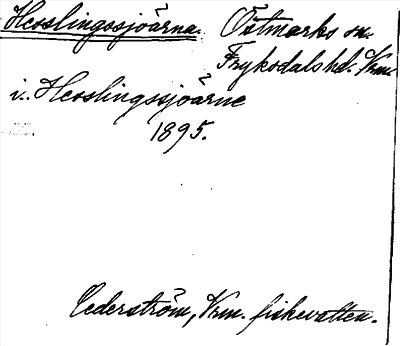 Hesslingssjöarna. Östmarks sn.
Frykodals hd. Vrm.
i. Hesslingssjöarne
1895.
Cederström, Vrm. fiskevatten.